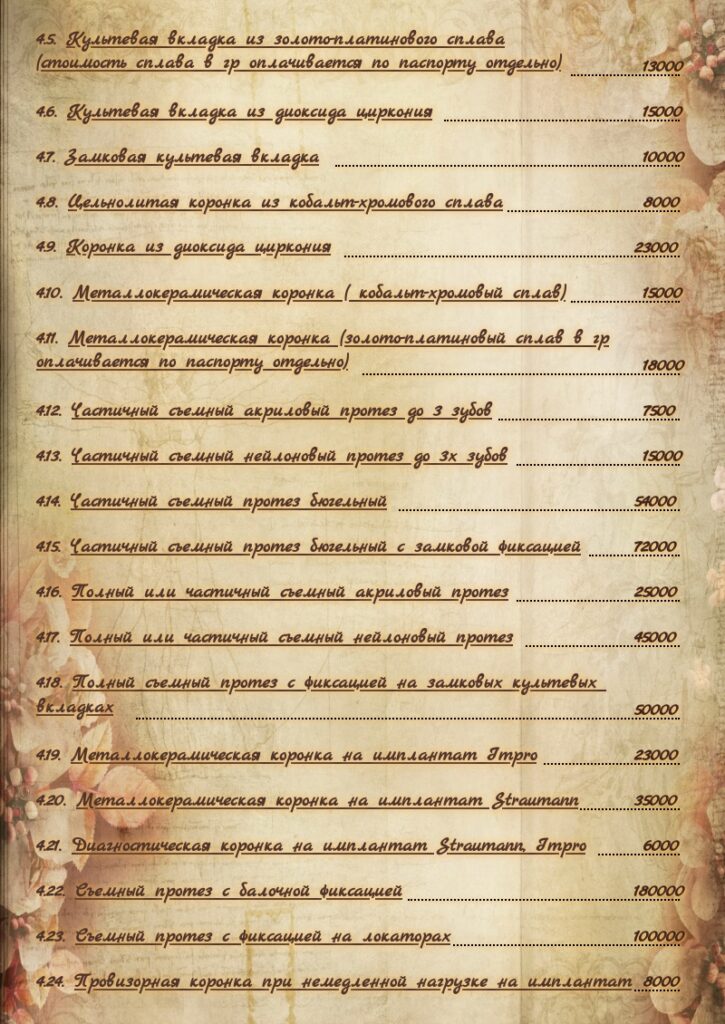 4.5. Культевая вкладка из золото-платинового сплава
(стоимость сплава в гр оплачивается по паспорту отдельно) 13000
4.6. Культевая вкладка из диоксида циркония 15000
4.7. Замковая культевая вкладка 10000
4.8. Цельнолитая коронка из кобальт-хромового сплава 8000
4.9. Коронка из диоксида циркония 23000
4.10. Металлокерамическая коронка ( кобальт-хромовый сплав) 15000
4.11. Металлокерамическая коронка (золото-платиновый сплав в гр
оплачивается по паспорту отдельно) 18000
4.12. Частичный съемный акриловый протез до 3 зубов 7500
4.13. Частичный съемный нейлоновый протез до 3х зубов 15000
4.14. Частичный съемный протез бюгельный 54000
4.15. Частичный съемный протез бюгельный с замковой фиксацией 72000
4.16. Полный или частичный съемный акриловый протез 25000
4.17. Полный или частичный съемный нейлоновый протез 45000
4.18. Полный съемный протез с фиксацией на замковых культевых
вкладках 50000
4.19. Металлокерамическая коронка на имплантат Impro 23000
4.20. Металлокерамическая коронка на имплантат Straumann 35000
4.21. Диагностическая коронка на имплантат Straumann, Impro 6000
4.22. Съемный протез с балочной фиксацией 180000
4.23. Съемный протез с фиксацией на локаторах 100000
4.24. Провизорная коронка при немедленной нагрузке на имплантат 8000